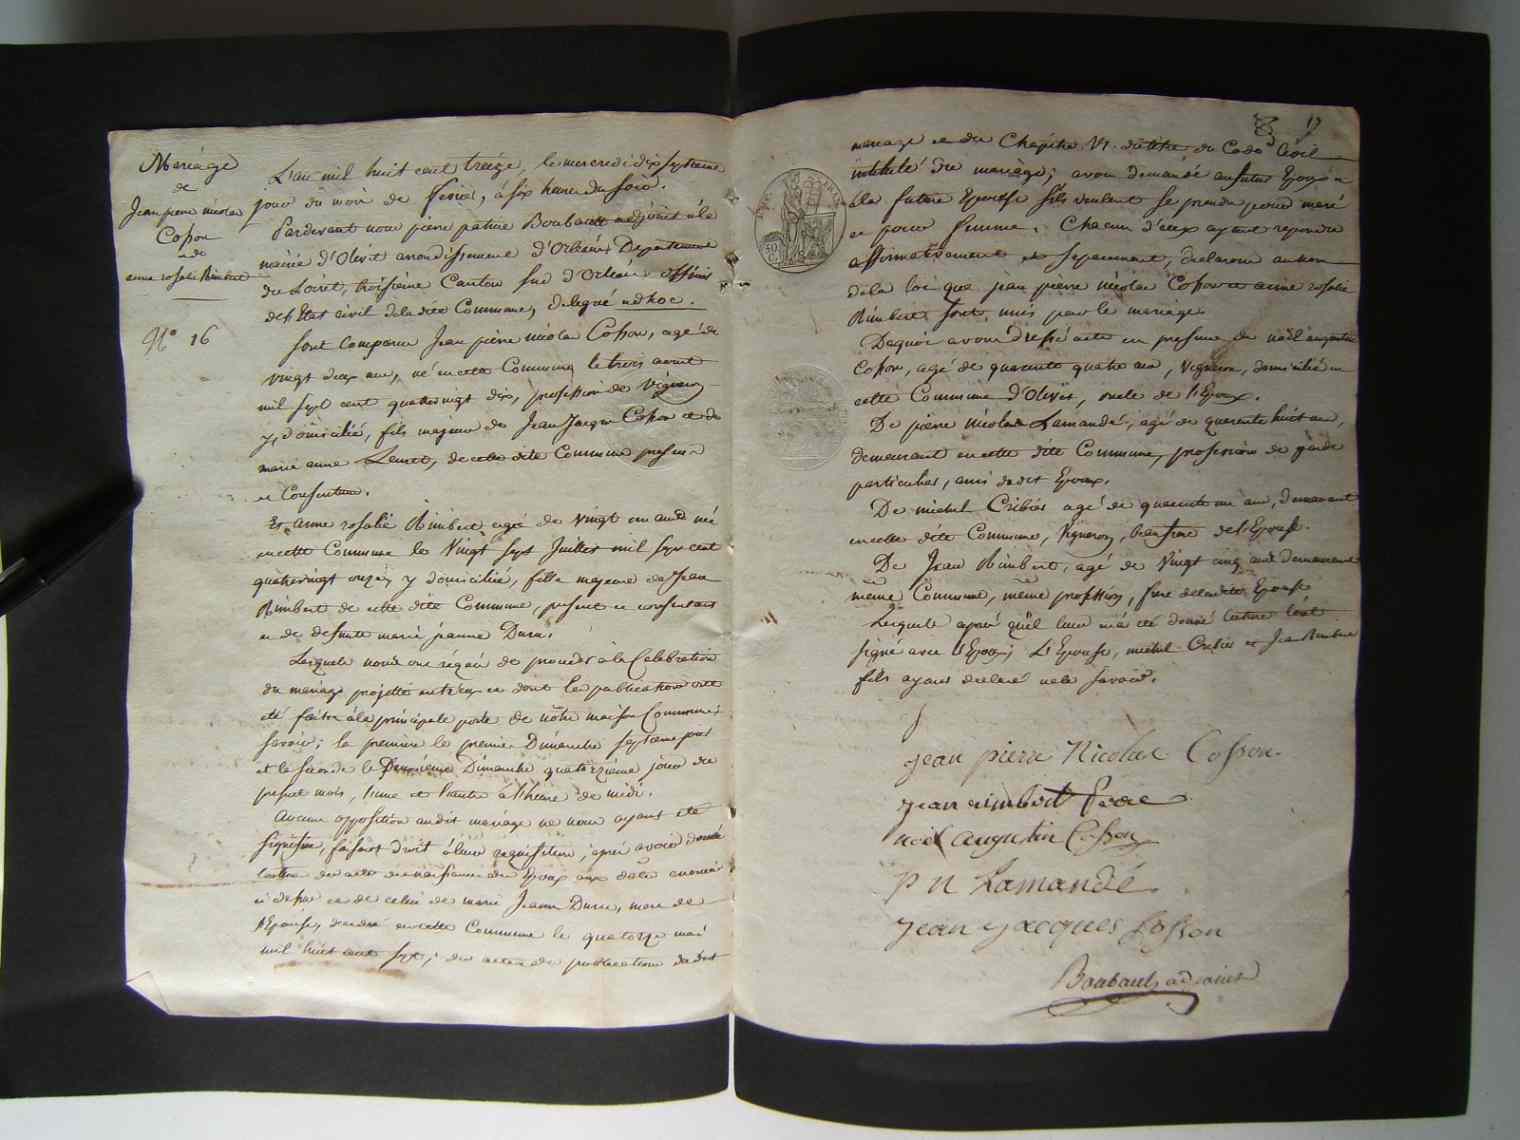 Mariage
de
Jean pierre nicolas
Cosson
et de
anne rosalie Rimbert
N° 16
L'an mil huit cent treize, le mercredi dix septieme
jour du mois de fevrier, à six heures du soir.
Pardevant nous pierre patrice Boubault adjoint à la
mairie d'Olivet arrondissement d'Orléans Departement
du Loiret, troisième Canton sud d'Orleans officier
de l'Etat civil de la dite Commune, delegué ad hoc.
sont Comparus Jean pierre nicolas Cosson, agé de
vingt deux ans, né en cette Commune le trois avril
mil sept cent quatrevingt dix, profession de vigneron
y domicilié, fils majeur de Jean Jacques Cosson et de
marie anne de cette dite Commune present
et Consentans.
Et anne rosalie Rimbert agée de vingt un ans née
en cette Commune le Vingt sept Juillet mil sept cent
quatrevingt onze, y domiciliée, fille majeure de Jean
Rimbert de cette dite Commune, present et consentant
et de defunte marie jeanne Duru.
Lesquels nous ont requis de proceder à la Celebration
du mariage projetté entr'eux et dont les publications ont
été faites à la principale porte de nôtre maison Commune;
savoir; la premiere le premier Dimanche septieme jour
et la seconde le Deuxième Dimanche quatorzième jour du
present mois, l'une et l'autre à l'heure de midi.
Aucune opposition audit mariage ne nous ayant été
signifiée, faisant droit à leur requisition, après avoir donné
lecture des actes de naissance des Epoux aux dates enoncées
ci dessus et de celui de marie Jeanne Duru, mere de
l'Epouse, decedée en cette Commune le quatorze mai
mil huit cent sept; des actes de publications dudit
17
mariage et du Chapitre VI. du titre du Code Civil
intitulé du mariage; avons demandé au futur Epoux et
à la future Epouse s'ils veulent se prendre pour mari
et pour femme. Chacun d'eux ayant repondu
affirmativement et separement, declarons au nom
de la loi que jean pierre nicolas Cosson et anne rosalie
Rimbert sont unis par le mariage.
Dequoi avons dressé acte en presence de noël augustin
Cosson, agé de quarante quatre ans, Vigneron, domicilié en
cette Commune d'Olivet, oncle de l'Epoux.
De pierre nicolas Lamandé, agé de quarante huit ans,
demeurant en cette dite Commune, profession de garde
particulier, ami dudit Epoux.
De michel Cribier agé de quarante un ans, demeurant
en cette dite Commune, Vigneron, beau frere de l'Epouse.
De Jean Rimbert, agé de Vingt cinq ans demeurant
même Commune, même profession, frere de la dite Epouse
Lesquels après qu'il leur en a été donné lecture l'ont
signé avec l'Epoux; L'Epouse, michel Cribier et Jean Rimbert
fils ayant declaré ne le savoir.
jean pierre Nicolas Cosson
jean rimbert Pere
noël augustin Cosson
P N Lamandé
jean jacques Cosson
Boubault adjoint